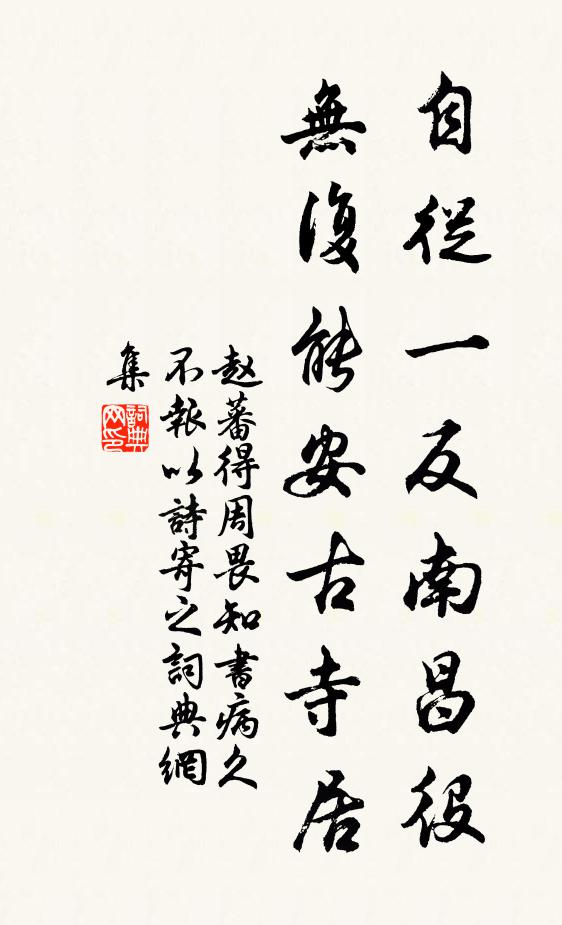 自從一反南昌役
無復能安古寺居
赵蕃得周畏知書病久
不報以詩寄之詞典網
集
詞典
网印